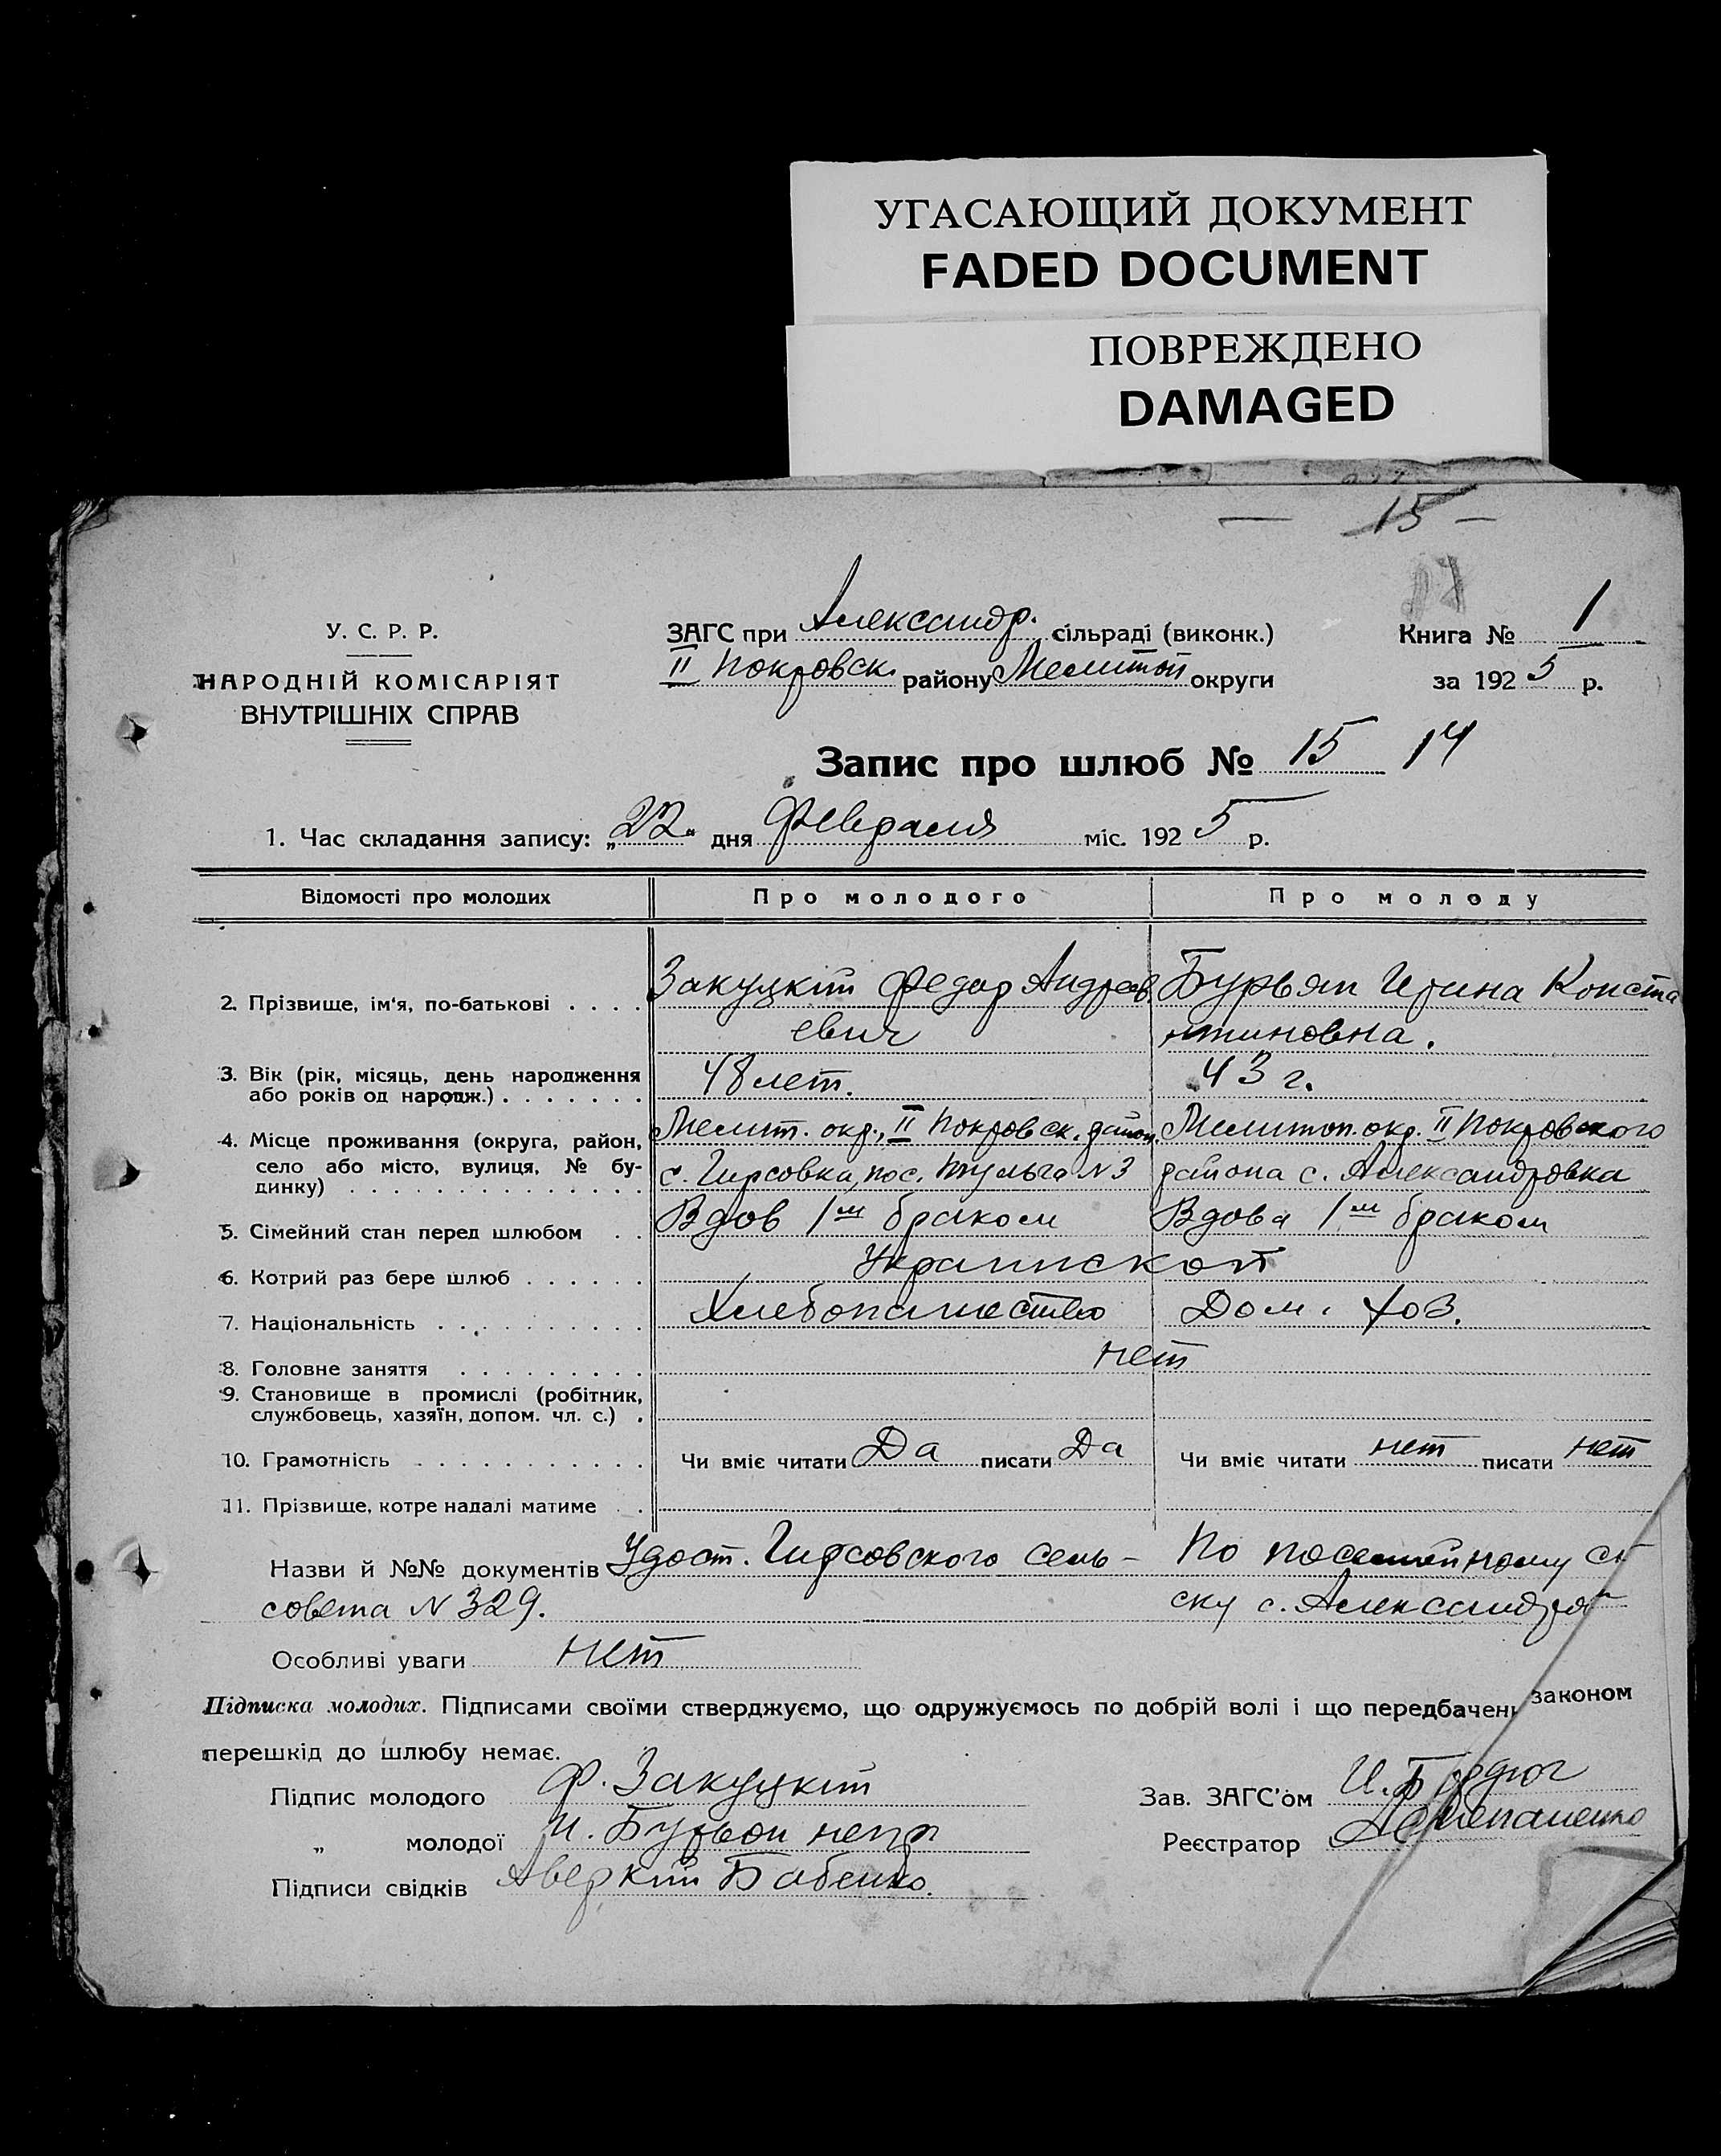 УГАСАЮЩИЙ ДОКУМЕНТ
FADED DOCUMENT
ПОВРЕЖДЕНО
DAMAGED
— 15 —
У. С. Р. Р.
НАРОДНІЙ КОМІСАРІЯТ
ВНУТРІШНІХ СПРАВ
ЗАГС при Александр. сільраді (виконк.)
II Покровск. району Мелитоп округи
Книга № 1
за 1925 р.
Запис про шлюб № 15 14
1. Час складання запису: „22“ дня Февраля міс. 1925 р.
Відомості про молодих Про молодого Про молоду
2. Прізвище, ім'я, по-батькові . . . . Закуцкій Федор Андреевич Бурьян Ирина Конста
евич нтиновна.
3. Вік (рік, місяць, день народження
або років од народж.) . . . . . . . 48 лет. 43 г.
4. Місце проживання (округа, район, Мелит. окр., II Покровск. район, Мелитоп. окр. II Покровского
село або місто, вулиця, № бу- с. Гирсовка, пос. Тульга N 3 района с. Александровка
динку) . . . . . . . . . . . . . .
5. Сімейний стан перед шлюбом . . Вдов 1м браком Вдова 1м браком
6. Котрий раз бере шлюб . . . . . . Украинской
7. Національність . . . . . . . . . . Хлебопашество Дом. хоз.
8. Головне заняття . . . . . . . . . нет
9. Становище в промислі (робітник,
службовець, хазяїн, допом. чл. с.) .
10. Грамотність . . . . . . . . . . . Чи вміє читати Да писати Да Чи вміє читати нет писати нет
11. Прізвище, котре надалі матиме . .
Назви й №№ документів Удост. Гирсовского сель- По посемейному сп
совета N 329. ску с. Александров
Особливі уваги нет
Підписка молодих. Підписами своїми стверджуємо, що одружуємось по добрій волі і що передбачені законом
перешкід до шлюбу немає.
Підпис молодого Ф. Закуцкій Зав. ЗАГС'ом И.
„ молодої И. Бурьян негр Реєстратор
Підписи свідків Аверкій Бабенко.